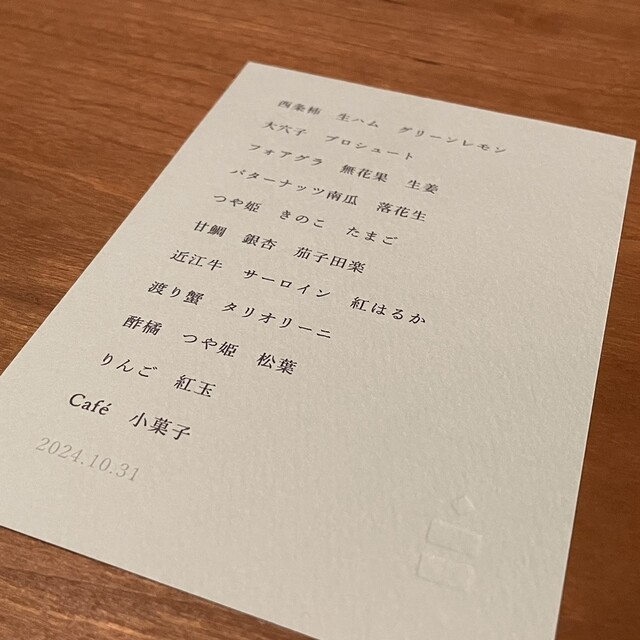 西条柿 生ハム グリーンレモン
大穴子 プロシュート
フォアグラ 無花果 生姜
バターナッツ南瓜 落花生
つや姫 きのこ たまご
甘鯛 銀杏 茄子田楽
近江牛 サーロイン 紅はるか
渡り蟹 タリオリーニ
酢橘 つや姫 松葉
りんご 紅玉
Café 小菓子
2024.10.31